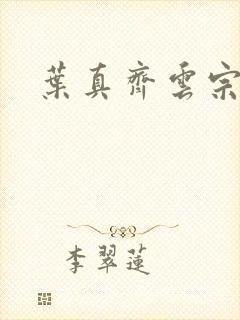 葉真齊雲宗
李翠蓮